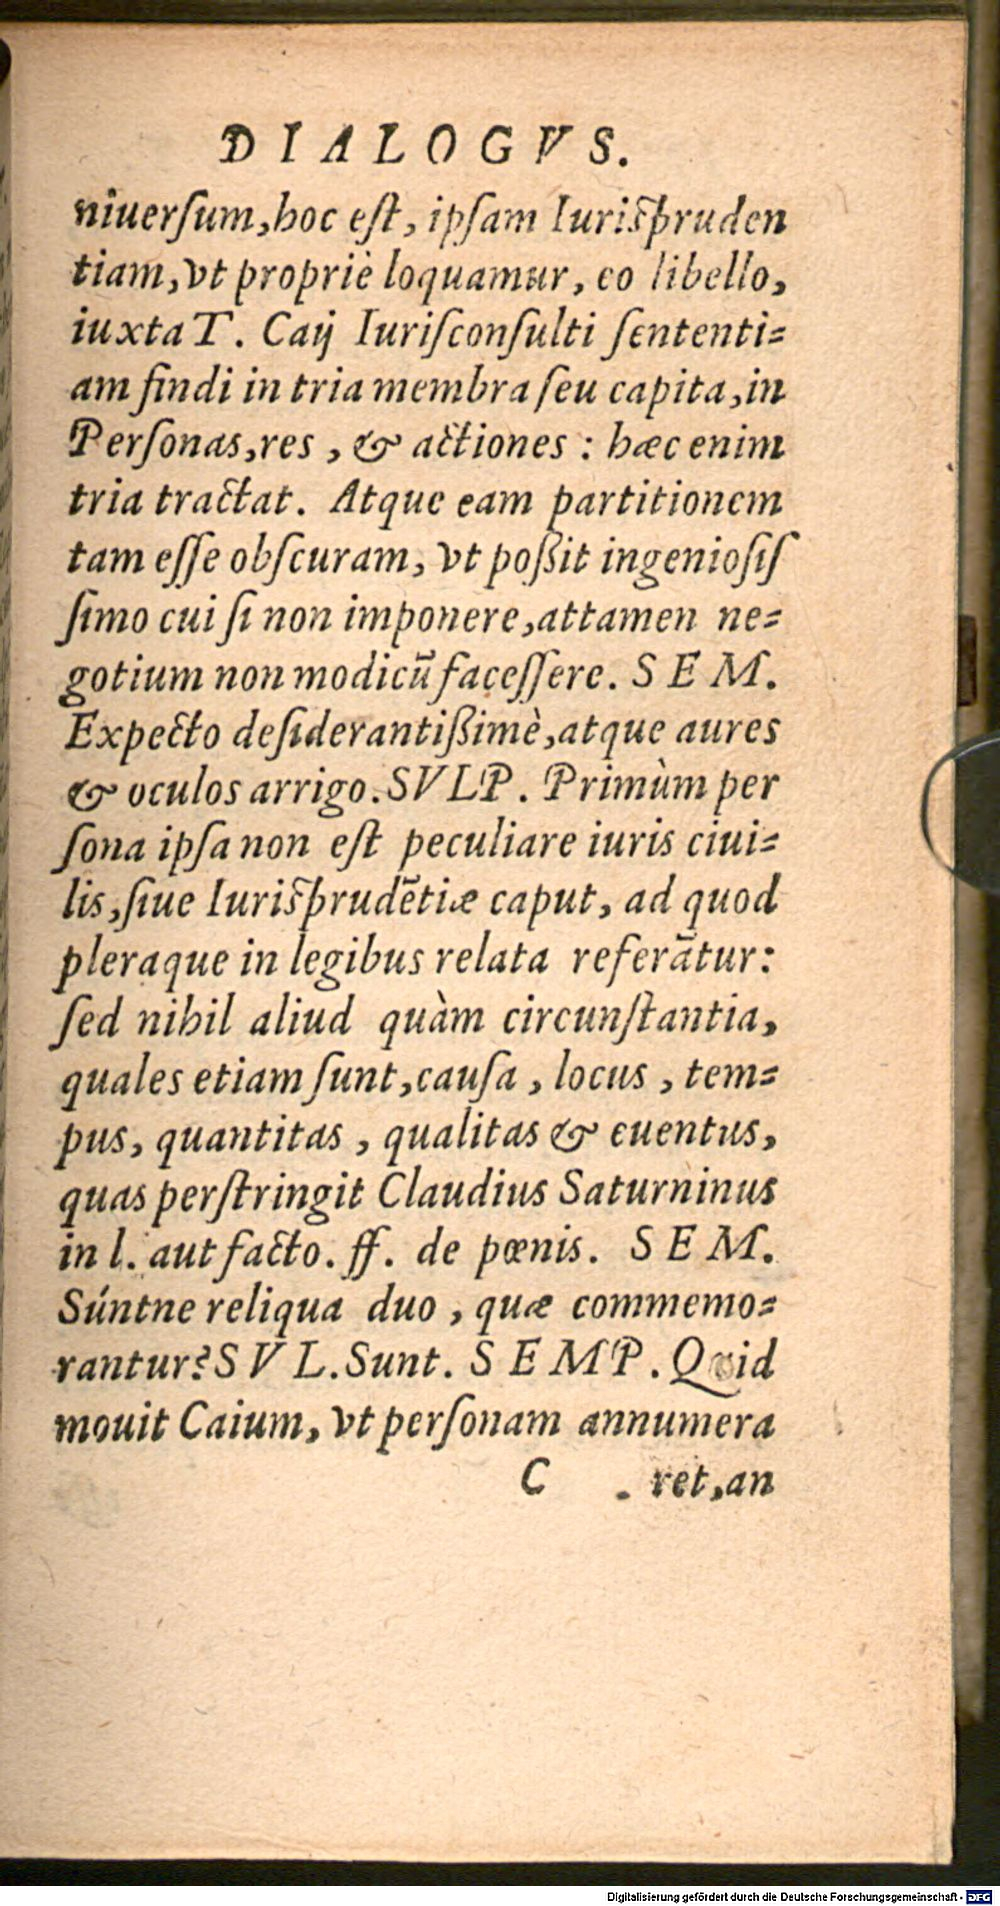 DIALOGVS.
niuerſum,hoc eſt, ipſam Iuriſpruden
tiam,vt propriè loquamur, eo libello,
iuxta T. Caij Iuriſconſulti ſententi-
am findi in tria membra ſeu capita,in
Perſonas,res, & actiones : hæc enim
tria tractat. Atque eam partitionem
tam eſſe obſcuram, vt poßit ingenioſiſ
ſimo cui ſi non imponere,attamen ne-
gotium non modicū faceſſere. SEM.
Expecto deſiderantißimè,atque aures
& oculos arrigo.SVLP. Primùm per
ſona ipſa non eſt peculiare iuris ciui-
lis,ſiue Iuriſprudētiæ caput, ad quod
pleraque in legibus relata referātur:
ſed nihil aliud quàm circunſtantia,
quales etiam ſunt,cauſa, locus, tem-
pus, quantitas, qualitas & euentus,
quas perſtringit Claudius Saturninus
in l. aut facto. ff. de pœnis. SEM.
Súntne reliqua duo, quæ commemo-
rantur?SVL.Sunt. SEMP. Quid
mouit Caium, vt perſonam annumera
C ret,an
Digitalisierung gefördert durch die Deutsche Forschungsgemeinschaft - DFG